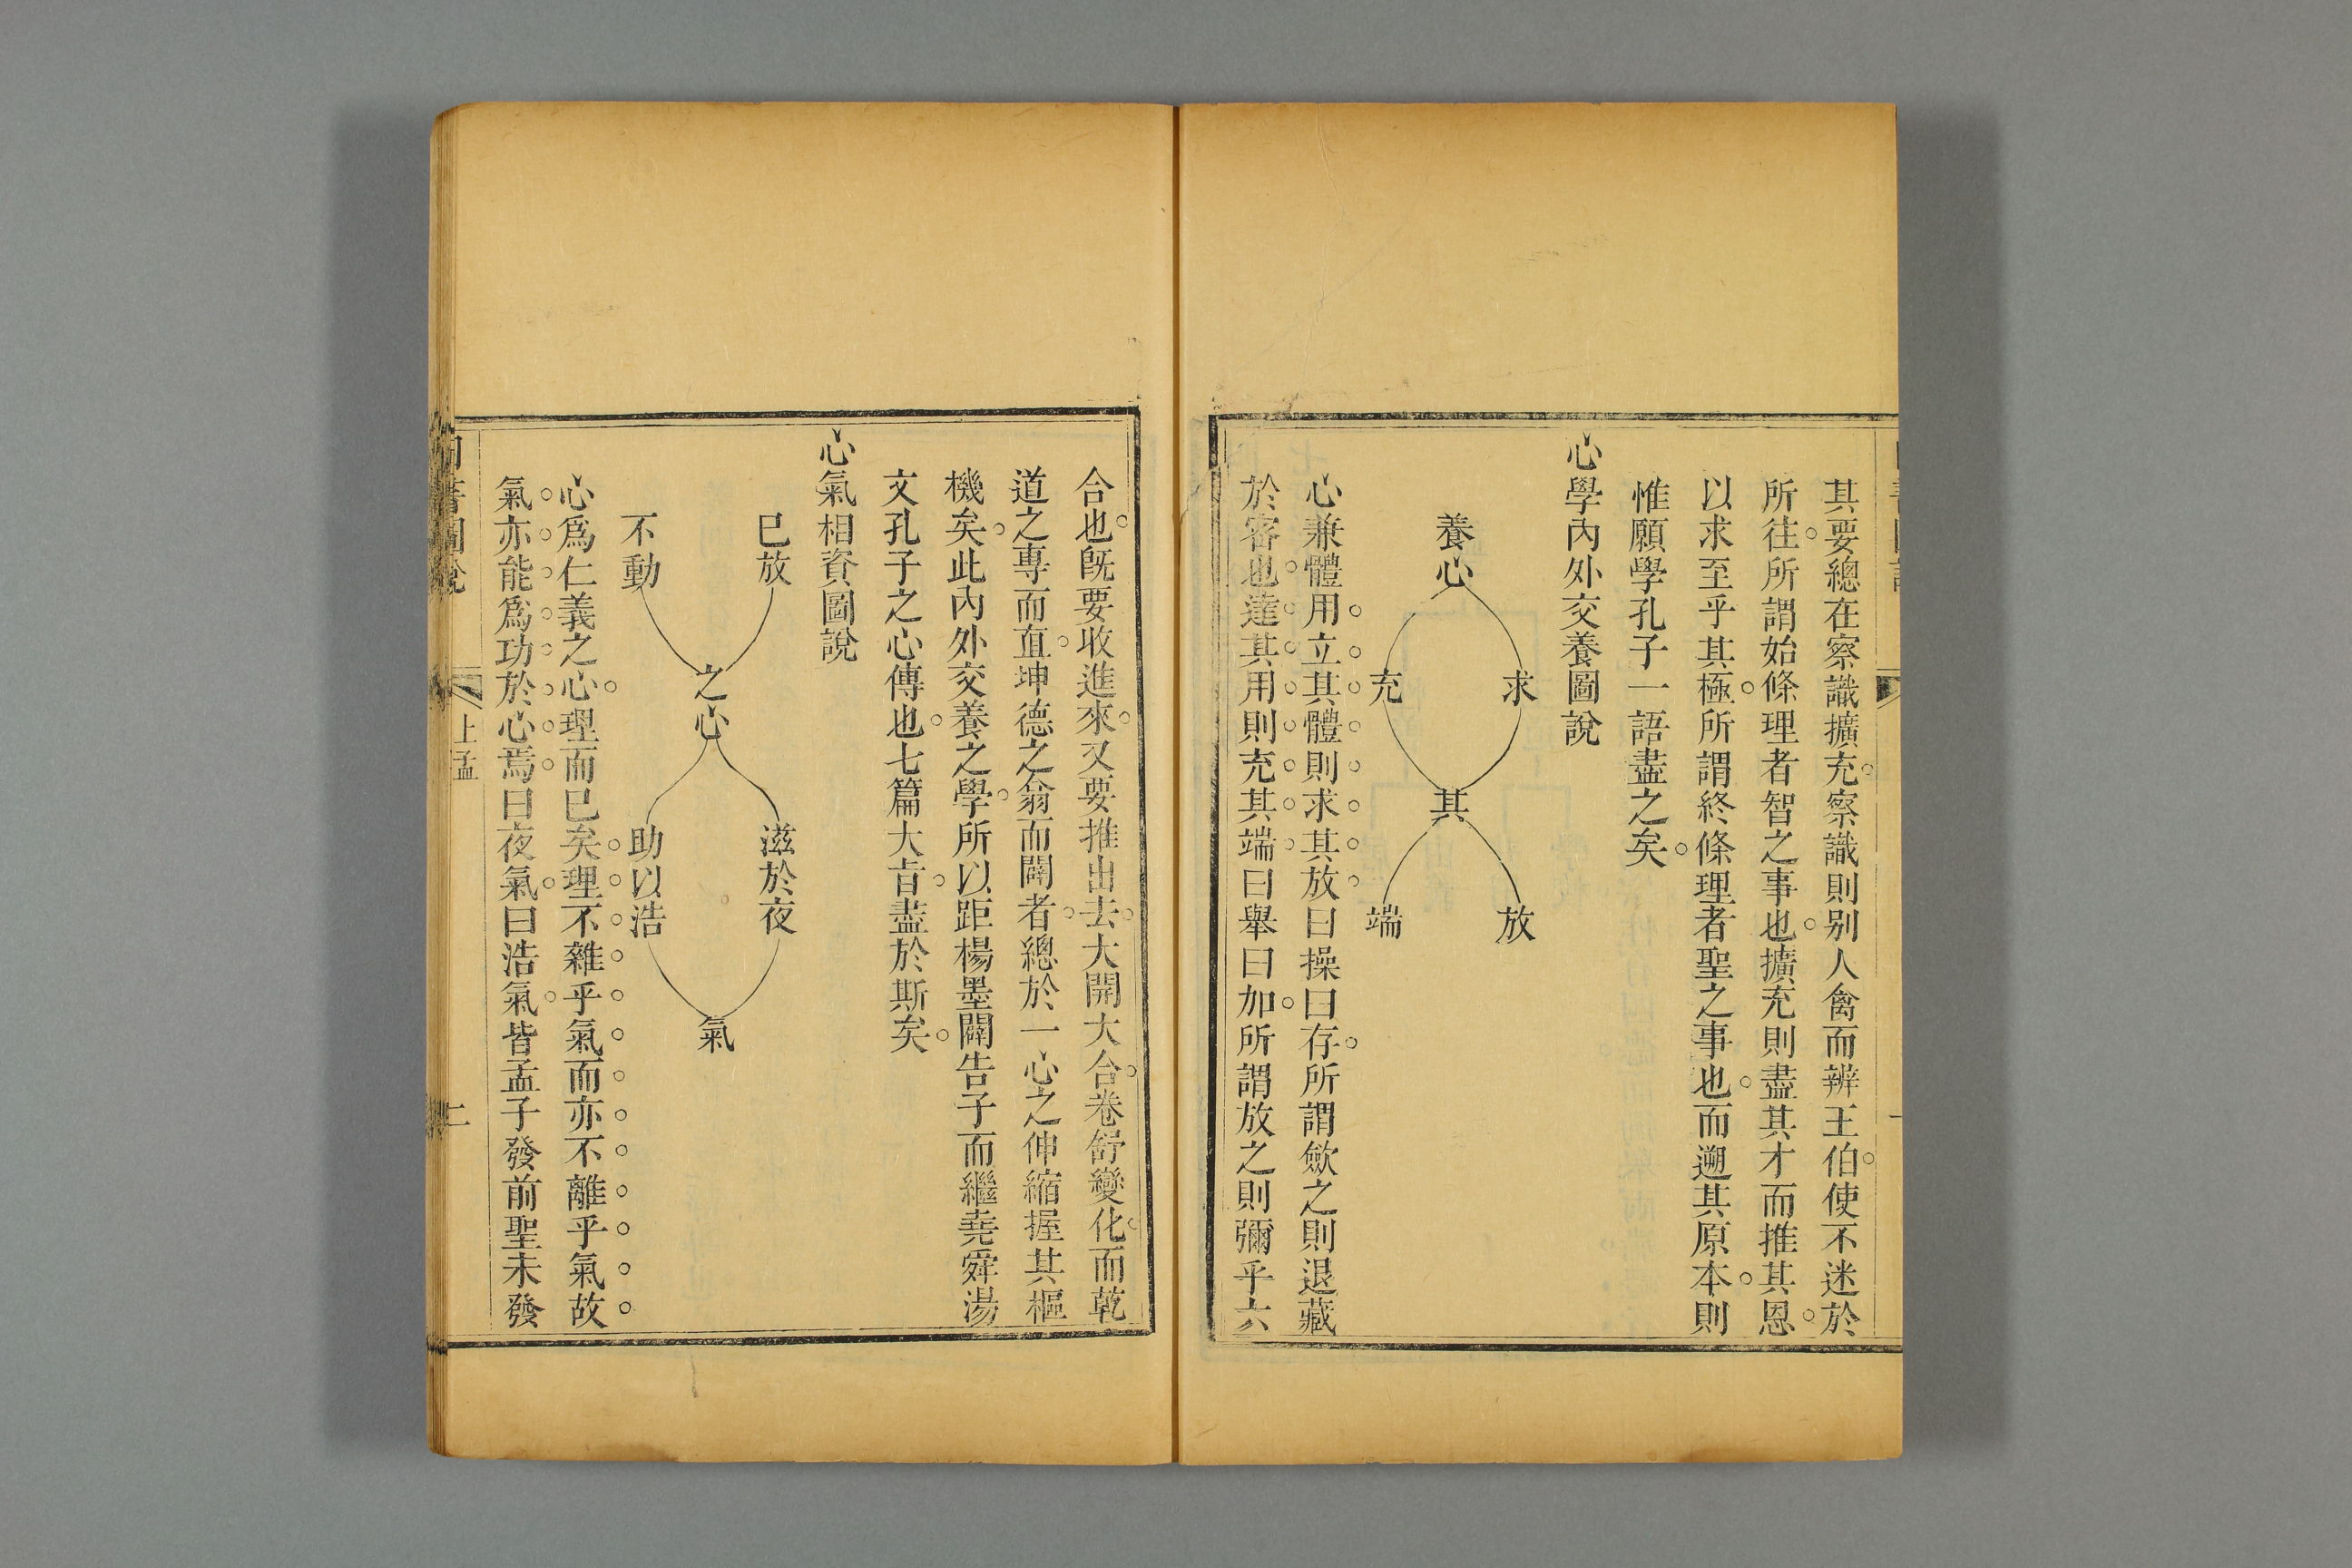 其要總在察識擴充察識則别人禽而辨王伯使不迷於
所往所謂始條理者智之事也擴充則盡其才而推其恩
以求至乎其極所謂終條理者聖之事也而遡其原本則
惟願學孔子一語盡之矣
心學內外交養圖說
養心
求
充
其
放
端
心兼體用立其體則求其放曰操曰存所謂歛之則退藏
於密也達其用則充其端曰舉曰加所謂放之則彌乎六
合也旣要收進來又要推出去大開大合卷舒變化而乾
道之專而直坤德之翕而闢者總於一心之伸縮握其樞
機矣此內外交養之學所以距楊墨闢告子而繼堯舜湯
文孔子之心傳也七篇大旨盡於斯矣
心氣相資圖說
已放
不動
之心
滋於夜
助以浩
氣
心爲仁義之心理而已矣理不雜乎氣而亦不離乎氣故
氣亦能爲功於心焉曰夜氣曰浩氣皆孟子發前聖未發
四書圖說
上孟
二